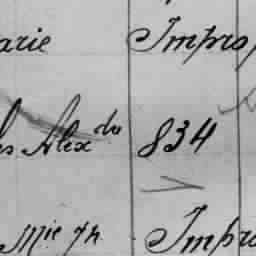 arie Impro
es Alex do 834
Mie Th. Impro